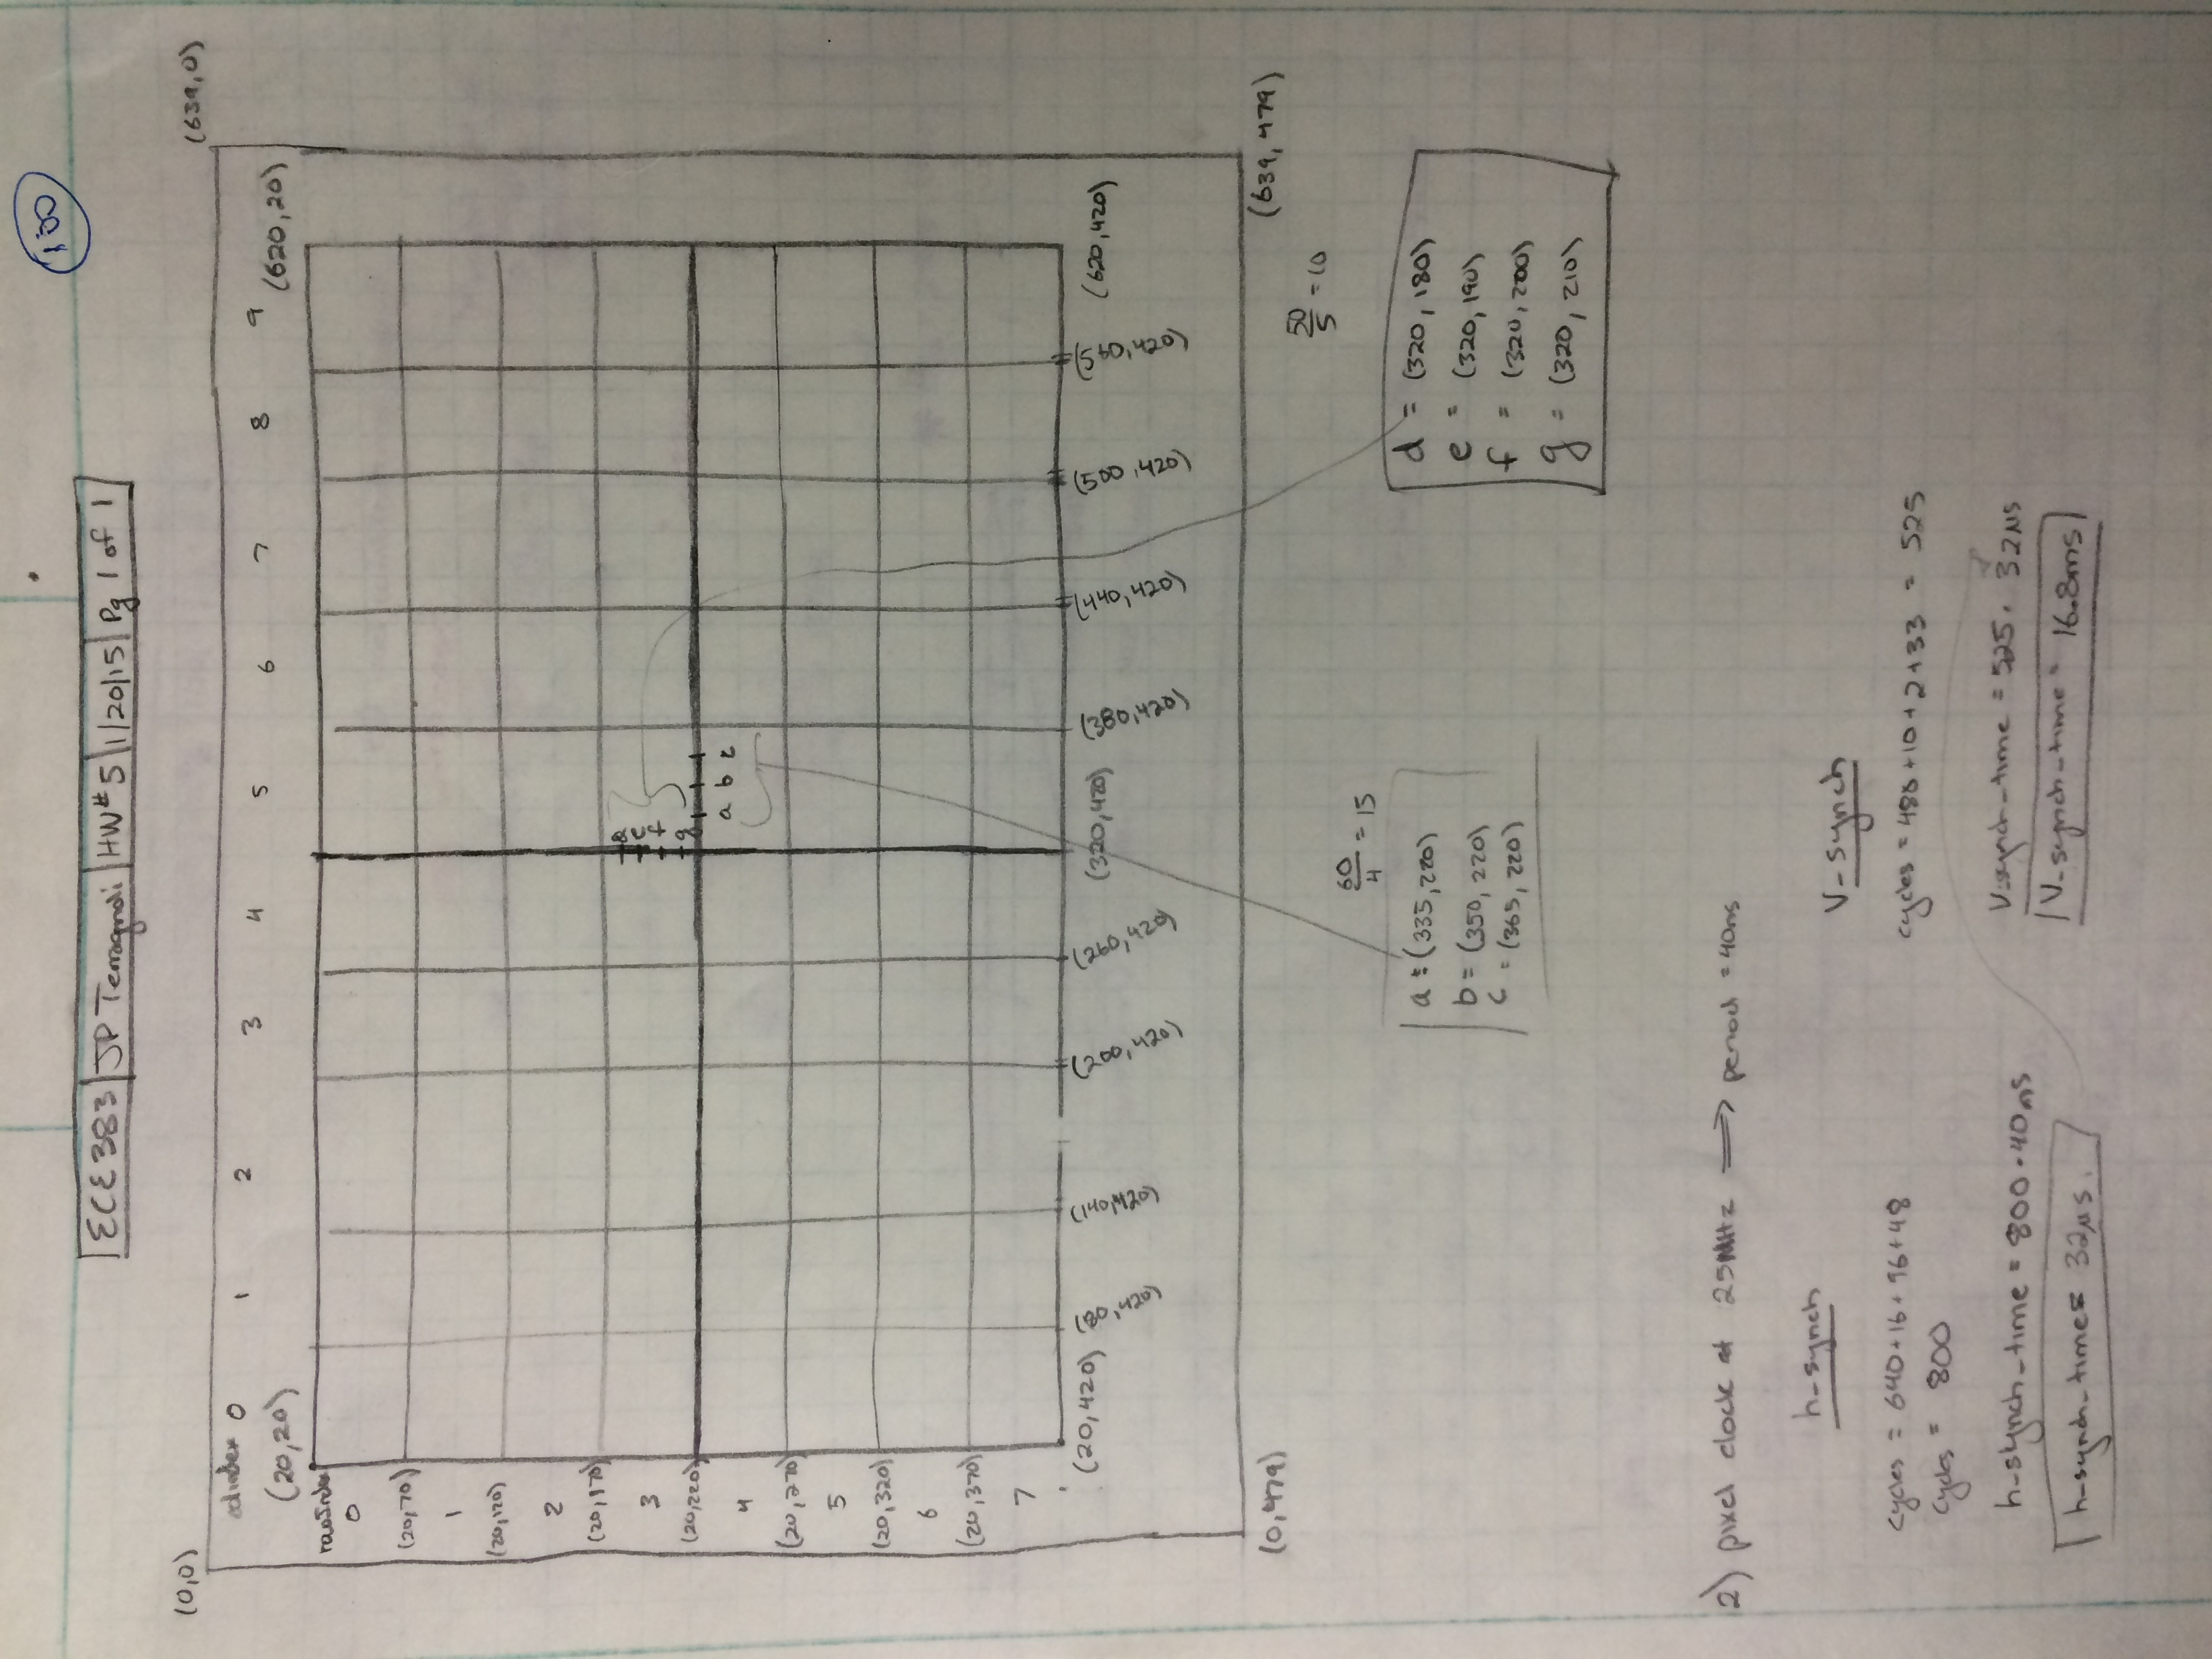 100
ECE383 | JP Terragnoli | HW#5 | 1/20/15 | Pg 1 of 1
(0,0) (639,0)
colindex 0 1 2 3 4 5 6 7 8 9
(20,20) (620,20)
rowIndex
0
(20,70)
1
(20,120)
2
(20,170)
d
e
3
f
g
(20,220)
a b c
4
(20,270)
5
(20,320)
6
(20,370)
7
(20,420) (320,420) (620,420)
(200,420) (260,420) (380,420) (440,420) (500,420)
(0,479) (639,479)
50/5 = 10
60/4 = 15
a = (335,220)
b = (350,220)
c = (365,220)
d = (320,180)
e = (320,190)
f = (320,200)
g = (320,210)
2) pixel clock at 25MHz ⟹ period = 40ns
h-synch
cycles = 640+16+96+48
cycles = 800
h-synch-time = 800·40ns
h-synch-time = 32µs.
V-synch
cycles = 480+10+2+33 = 525
V-synch-time = 525· 32µs
V-synch-time = 16.8ms